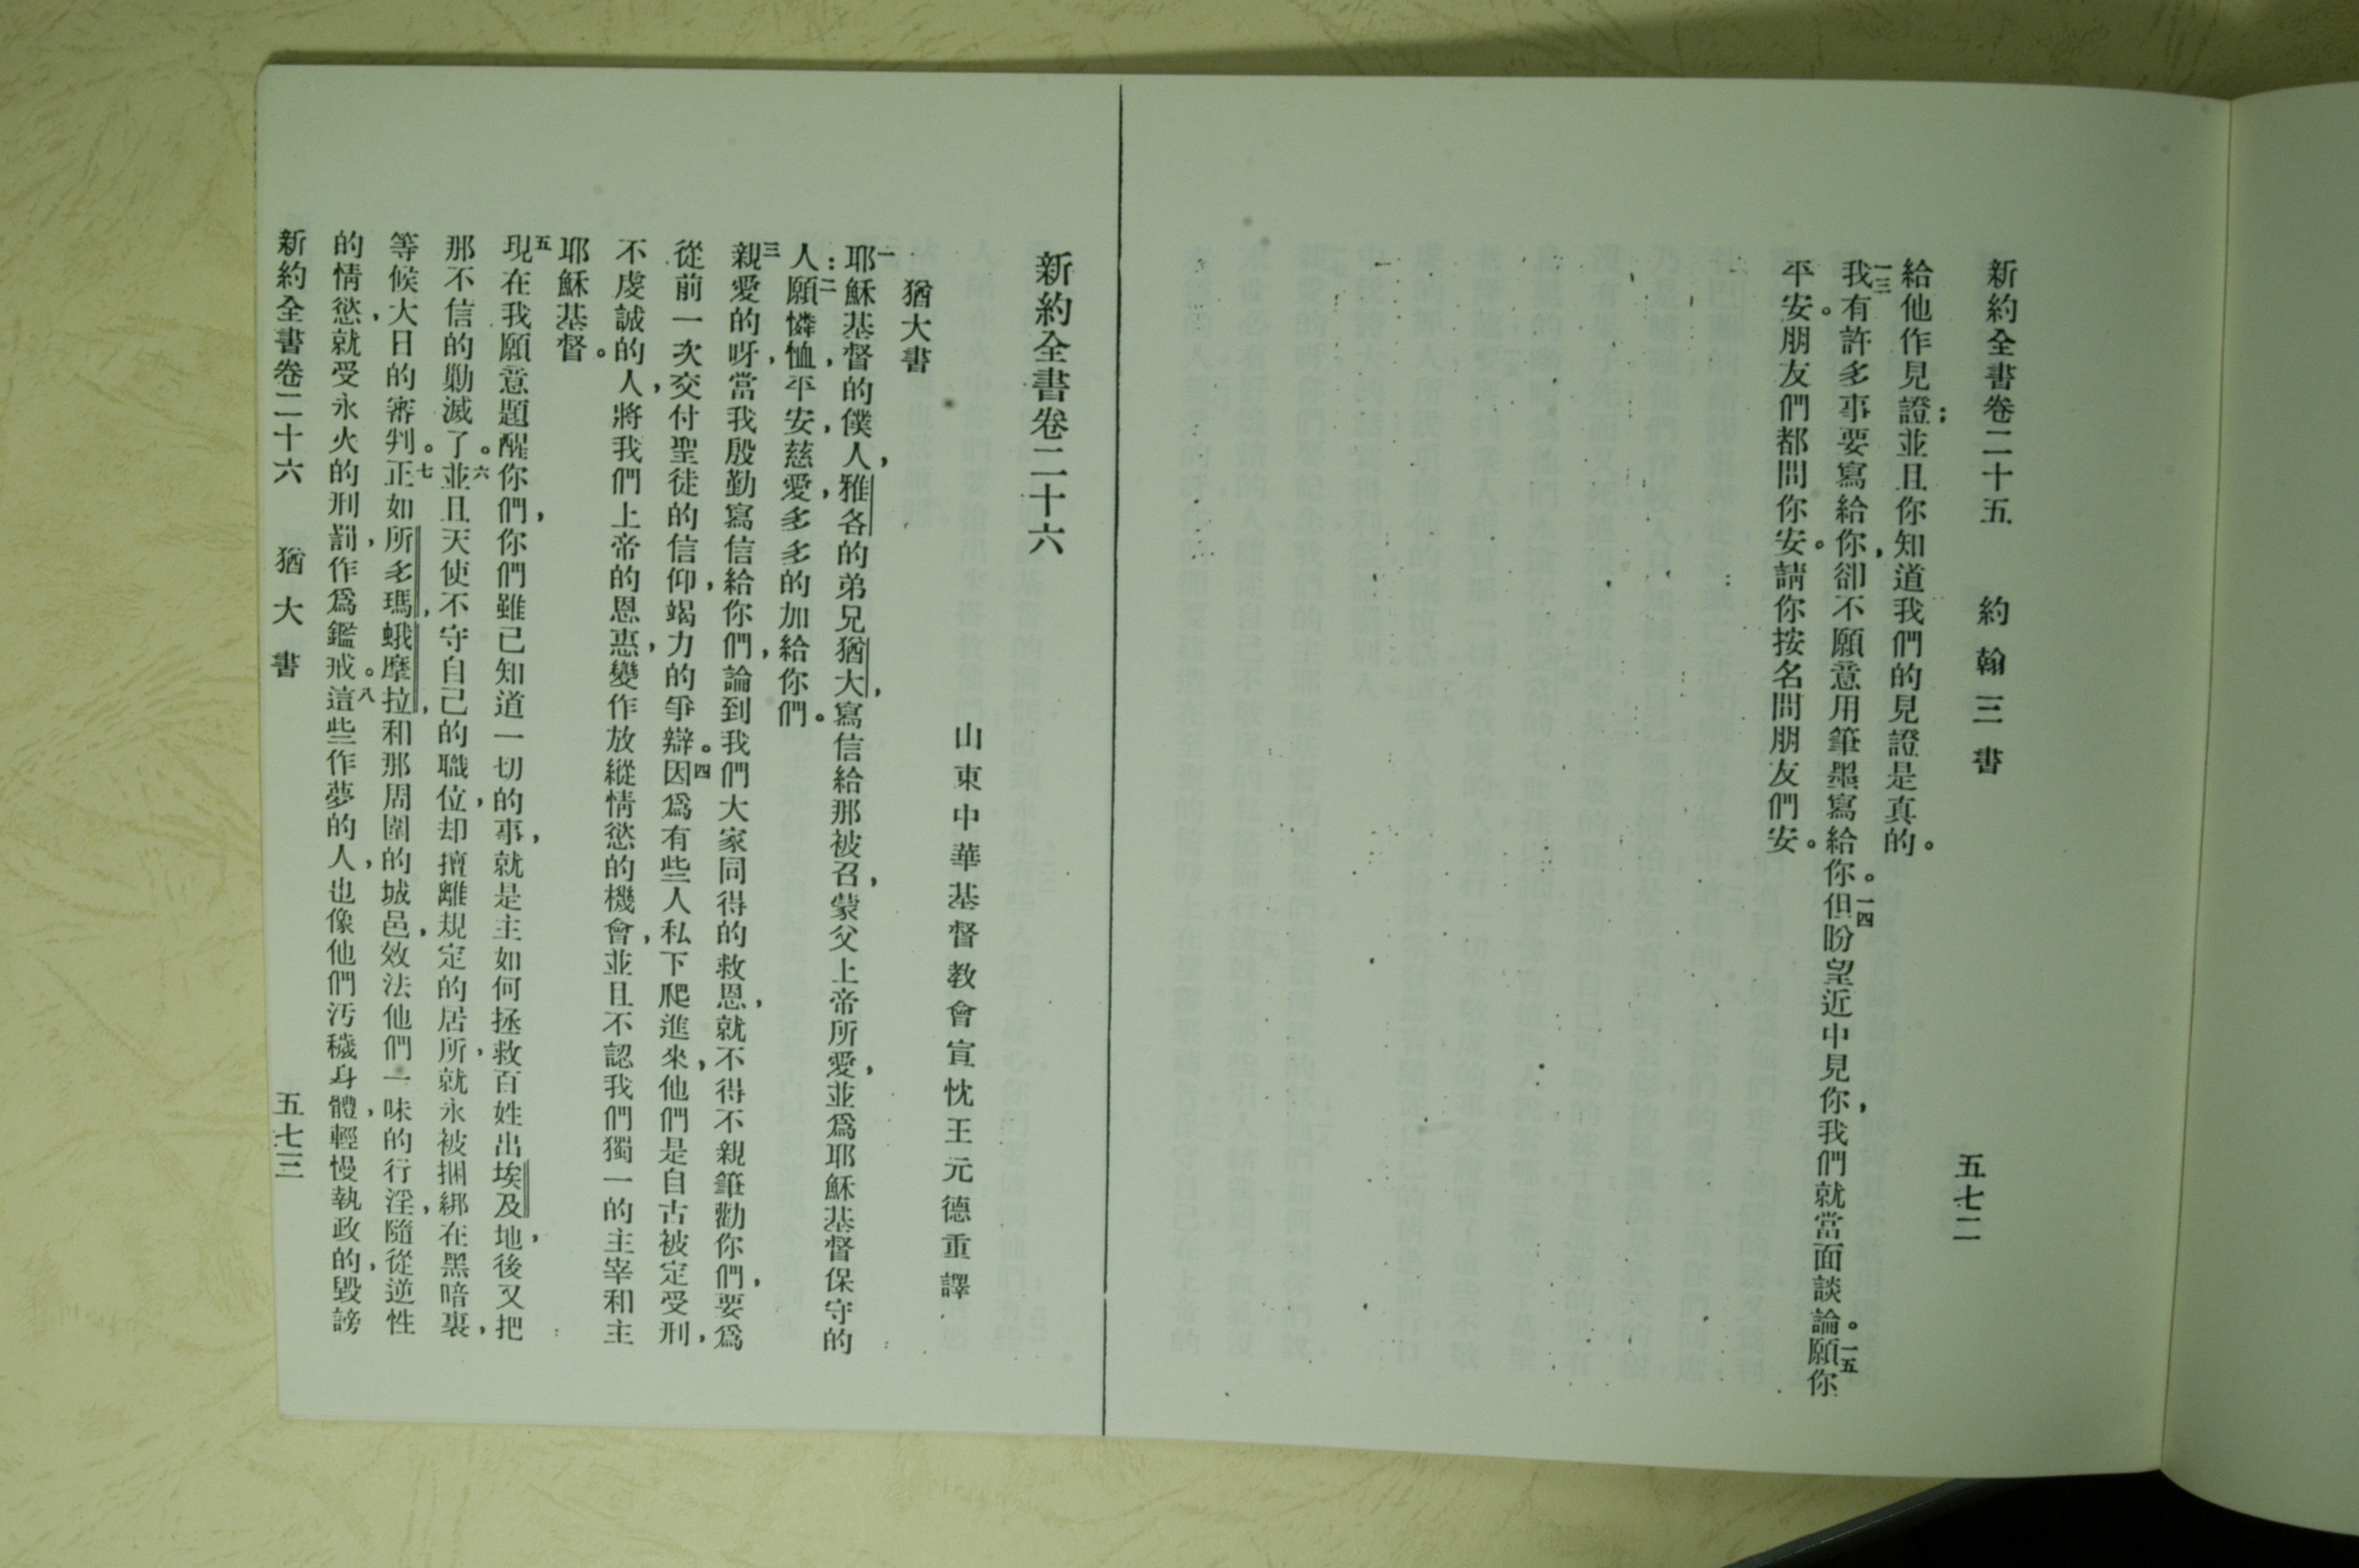 新約全書卷二十五　約翰三書　五七二
給他作見證；並且你知道我們的見證是真的。
一三我有許多事要寫給你，卻不願意用筆墨寫給你。一四但盼望近中見你，我們就當面談論。一五願你
平安。朋友們都問你安。請你按名問朋友們安。
新約全書卷二十六
山東中華基督教會宣忱王元德重譯
猶大書
一耶穌基督的僕人，雅各的弟兄猶大，寫信給那被召，蒙父上帝所愛，並爲耶穌基督保守的
人：二願憐恤，平安，慈愛，多多的加給你們。
三親愛的呀，當我殷勤寫信給你們，論到我們大家同得的救恩，就不得不親筆勸你們，要爲
從前一次交付聖徒的信仰，竭力的爭辯。四因爲有些人私下爬進來，他們是自古被定受刑，
不虔誠的人，將我們上帝的恩惠，變作放縱情慾的機會，並且不認我們獨一的主宰和主
耶穌基督。
五現在我願意題醒你們，你們雖已知道一切的事，就是主如何拯救百姓出埃及地，後又把
那不信的勦滅了。六並且天使不守自己的職位，却擅離規定的居所，就永被捆綁在黑暗裏，
等候大日的審判。七正如所多瑪，蛾摩拉，和那周圍的城邑，效法他們一味的行淫，隨從逆性
的情慾，就受永火的刑罰，作爲鑑戒。八這些作夢的人，也像他們汚穢身體，輕慢執政的，毀謗
新約全書卷二十六　猶大書　五七三